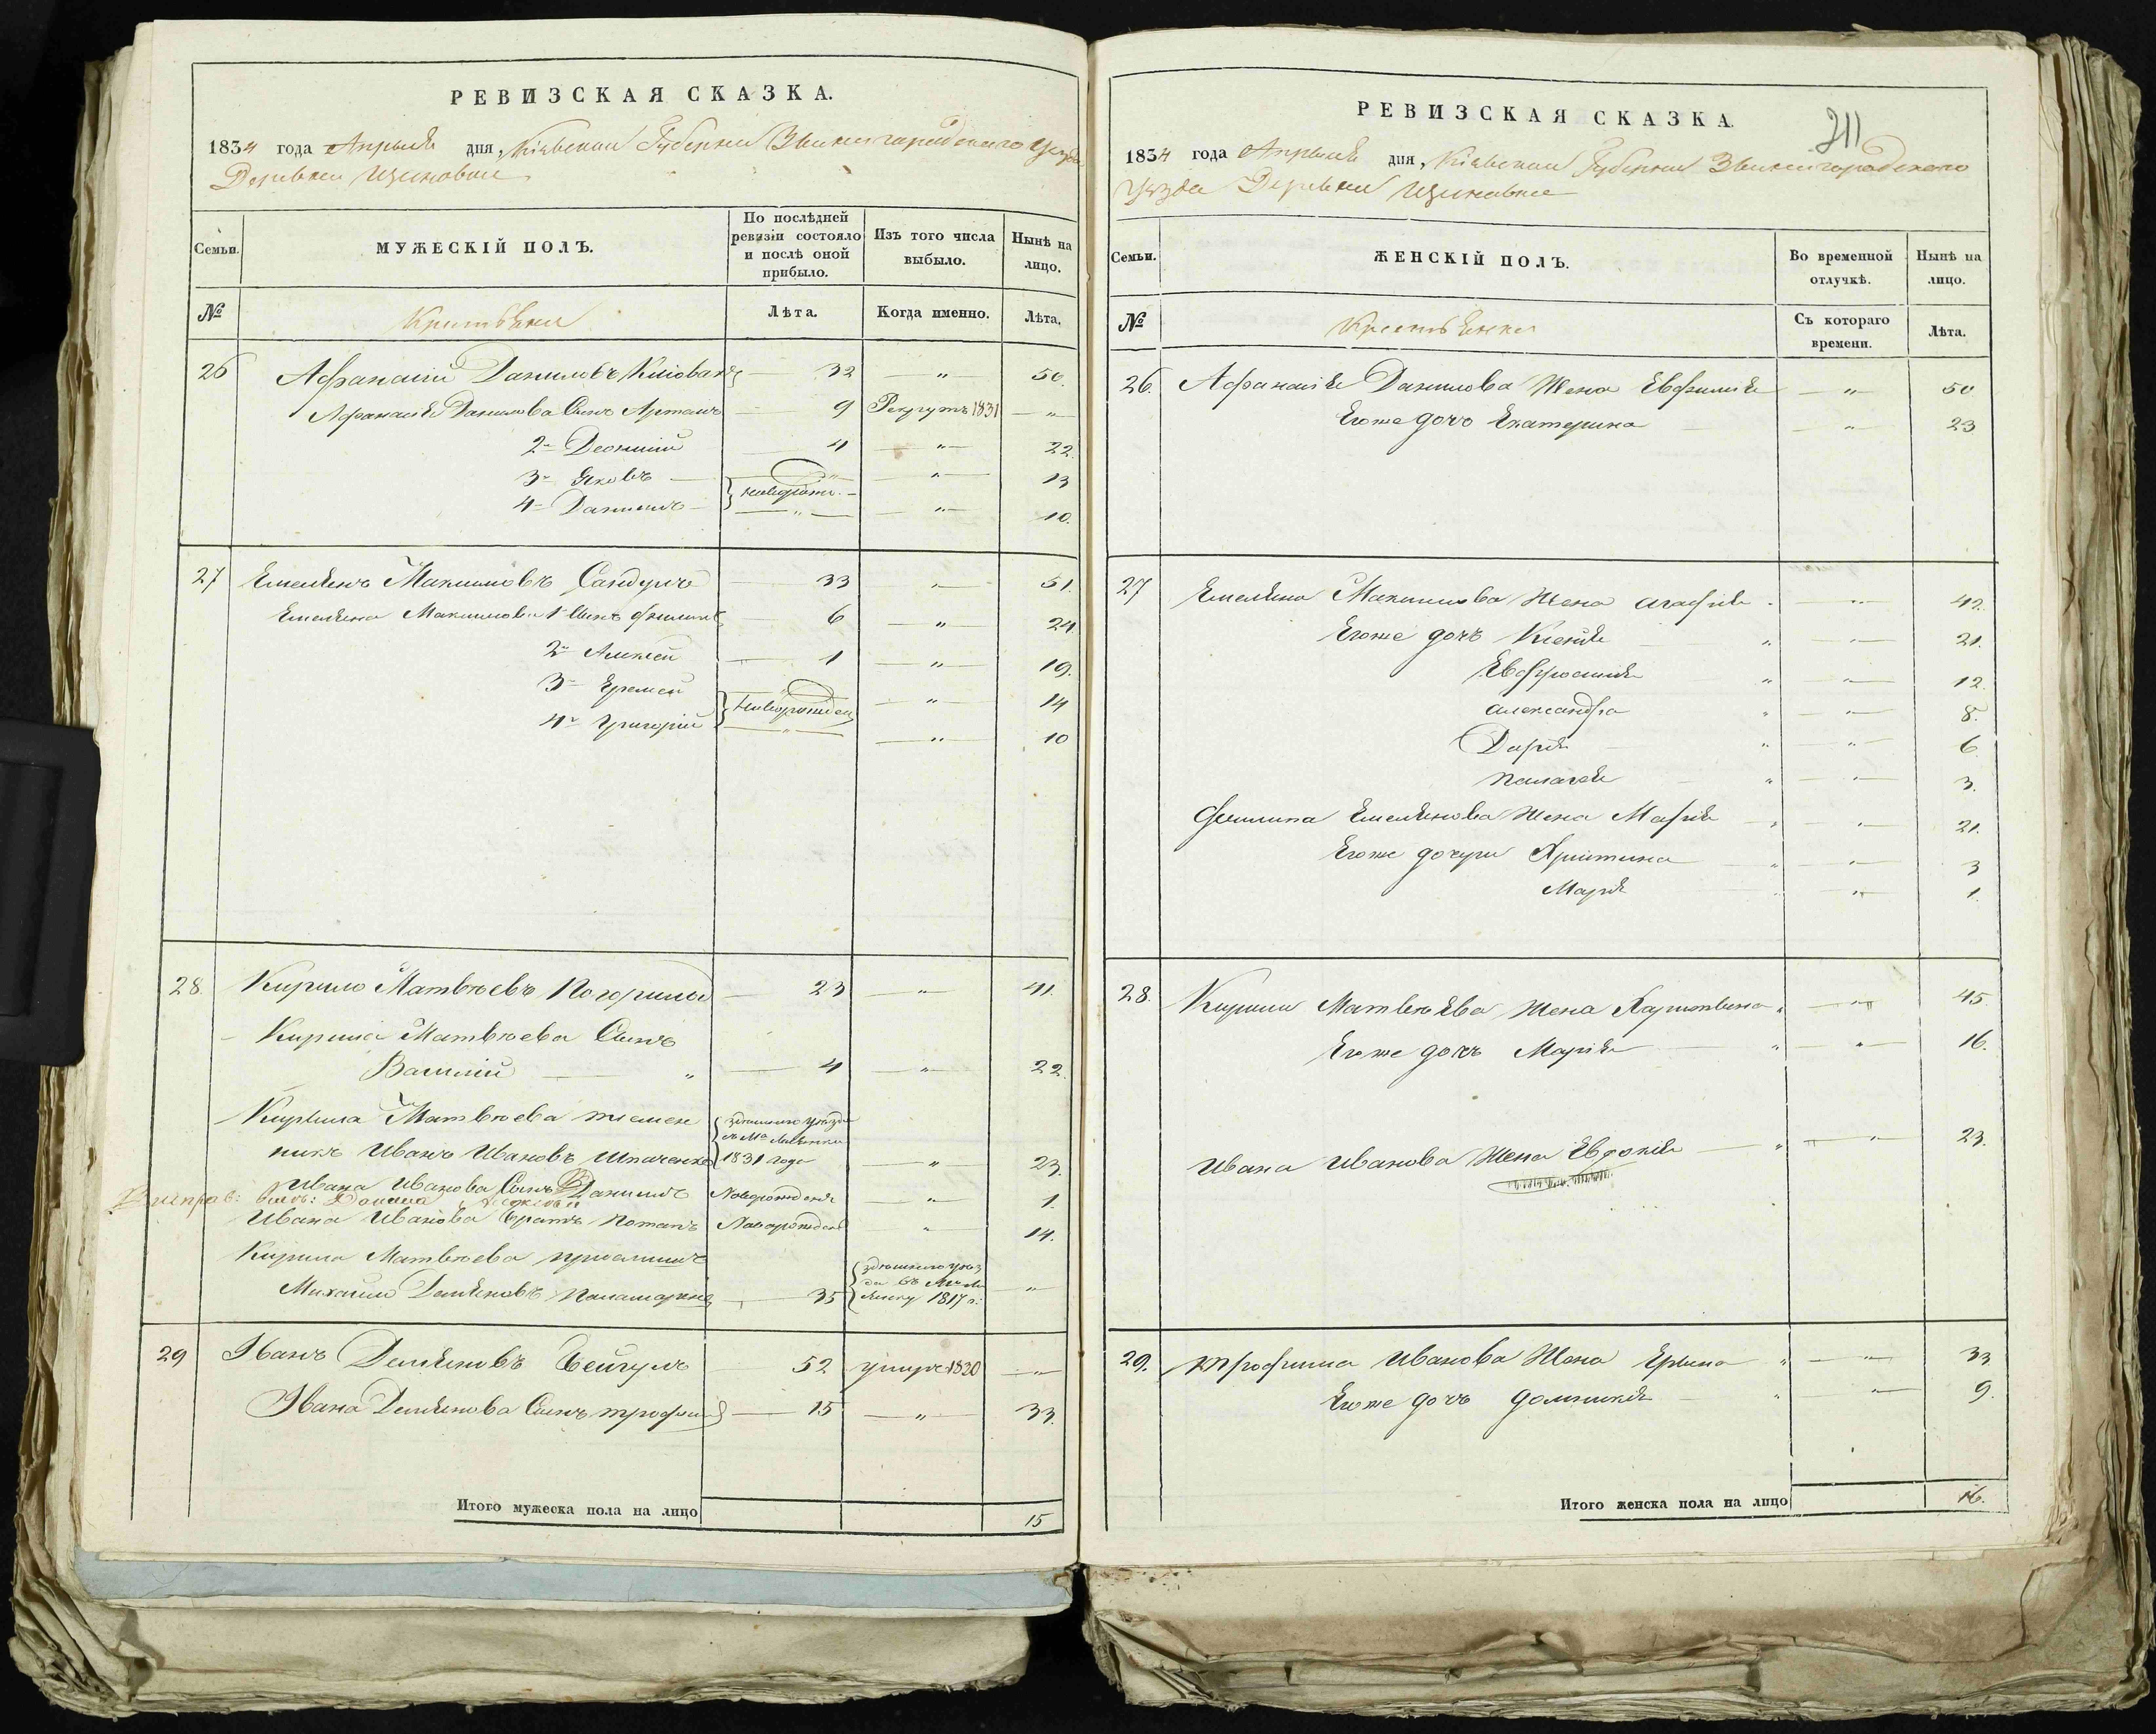 РЕВИЗСКАЯ СКАЗКА.
1834 года Апреля дня, Кіевской Губерніи Звенигородского Уезда
Деревни
Семьи.
МУЖЕСКІЙ ПОЛЪ.
По послѣдней ревизіи состояло и послѣ оной прибыло.
Изъ того числа выбыло.
Нынѣ на лицо.
№
Лѣта.
Когда именно.
Лѣта.
26 Афанасій Даниловъ 32 — " — 50.
Афанасія Данилова Сынъ 9 Рекрутъ 1831 — " —
2й 4 — " — 22.
3й Яковъ — " — 13
4й Данило — " — 10.
27 Емельянъ Максимовъ 33 — " — 51.
Емельяна Максимова 1й Сынъ Филипъ 6 — " — 24
2й Алексей 1 — " — 19.
3й Еремей Новорожден — " — 14
4й Григорій — " — — " — 10
28. Кирило Матвѣевъ 23 — " — 41.
Кирила Матвѣева Сынъ
Василій — " 4 — " — 22.
Кирила Матвѣева племен
никъ Иванъ Ивановъ 1831 года — " — 23.
Ивана Иванова Сынъ Данило Новорожденъ " 1.
Ивана Иванова братъ Потапъ Новорожденъ " 14.
Кирила Матвѣева
Михайло Демьяновъ 35 1817 г: — " —
29 Иванъ Демьяновъ 52 умре 1830 — " —
Ивана Демьянова Сынъ Трофимъ 15 — " — 33.
Итого мужеска пола на лицо 15
РЕВИЗСКАЯ СКАЗКА.
211
1834 года Апреля дня, Кіевской Губерніи Звенигородского
Уезда Деревни
Семьи.
ЖЕНСКІЙ ПОЛЪ.
Во временной отлучкѣ.
Нынѣ на лицо.
№
Съ котораго времени.
Лѣта.
26. Афанасія Данилова Жена Евфимія — " — 50
Егоже дочь Екатерина — " — 23
27 Емельяна Максимова Жена Агафія — " — 42.
Егоже дочь Ксенія " — " — 21.
Евфросинія " — " — 12.
Александра " — " — 8.
Дарія " — " — 6
Палагея " — " — 3.
Филипа Емельянова Жена Марія " — " — 21.
Егоже дочери Христина " — " — 3
Марія " — " — 1.
28. Кирила Матвѣева Жена " — " — 45.
Егоже дочь Марія " — " — 16.
Ивана Иванова Жена Евдокія " — " — 23.
29. Трофима Иванова Жена " — " — 33
Егоже дочь Домникія " — " — 9.
Итого женска пола на лицо 16.